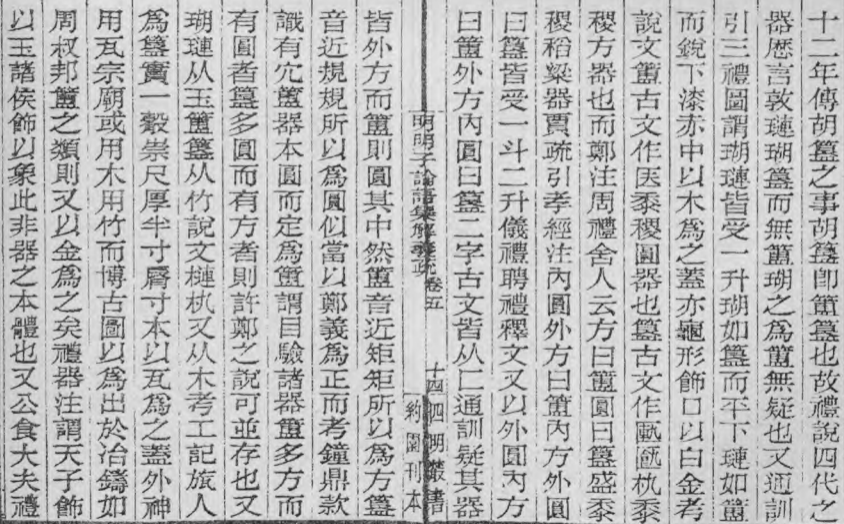 十二年傳胡簋之事胡簋卽簠簋也故禮說四代之
器歷言敦璉瑚簋而無簠瑚之爲簠無疑也又通訓
引三禮圖謂瑚璉皆受一升瑚如簋而平下璉如簠
而銳下漆赤中以木爲之蓋亦龜形飾口以白金考
說文簠古文作医黍稷圜器也簋古文作匭匦朹黍
稷方器也而鄭注周禮舍人云方曰簠圓曰簋盛黍
稷稻粱器賈疏引孝經注內圓外方曰簠內方外圓
曰簋皆受一斗二升儀禮聘禮釋文又以外圓內方
曰簠外方內圓曰簋二字古文皆从匚通訓疑其器
明明子論語集解義疏 卷五 十四 四明叢書
約園刊本
皆外方而簠則圓其中然簠音近矩矩所以爲方簋
音近規規所以爲圓似當以鄭義爲正而考鐘鼎款
識有宂簠器本圓而定爲簠謂目驗諸器簠多方而
有圓者簋多圓而有方者則許鄭之說可並存也又
瑚璉从玉簠簋从竹說文槤朹又从木考工記旊人
爲簋實一觳崇尺厚半寸脣寸本以瓦爲之蓋外神
用瓦宗廟或用木用竹而博古圖以爲出於冶鑄如
周叔邦簠之類則又以金爲之矣禮器注謂天子飾
以玉諸侯飾以象此非器之本體也又公食大夫禮